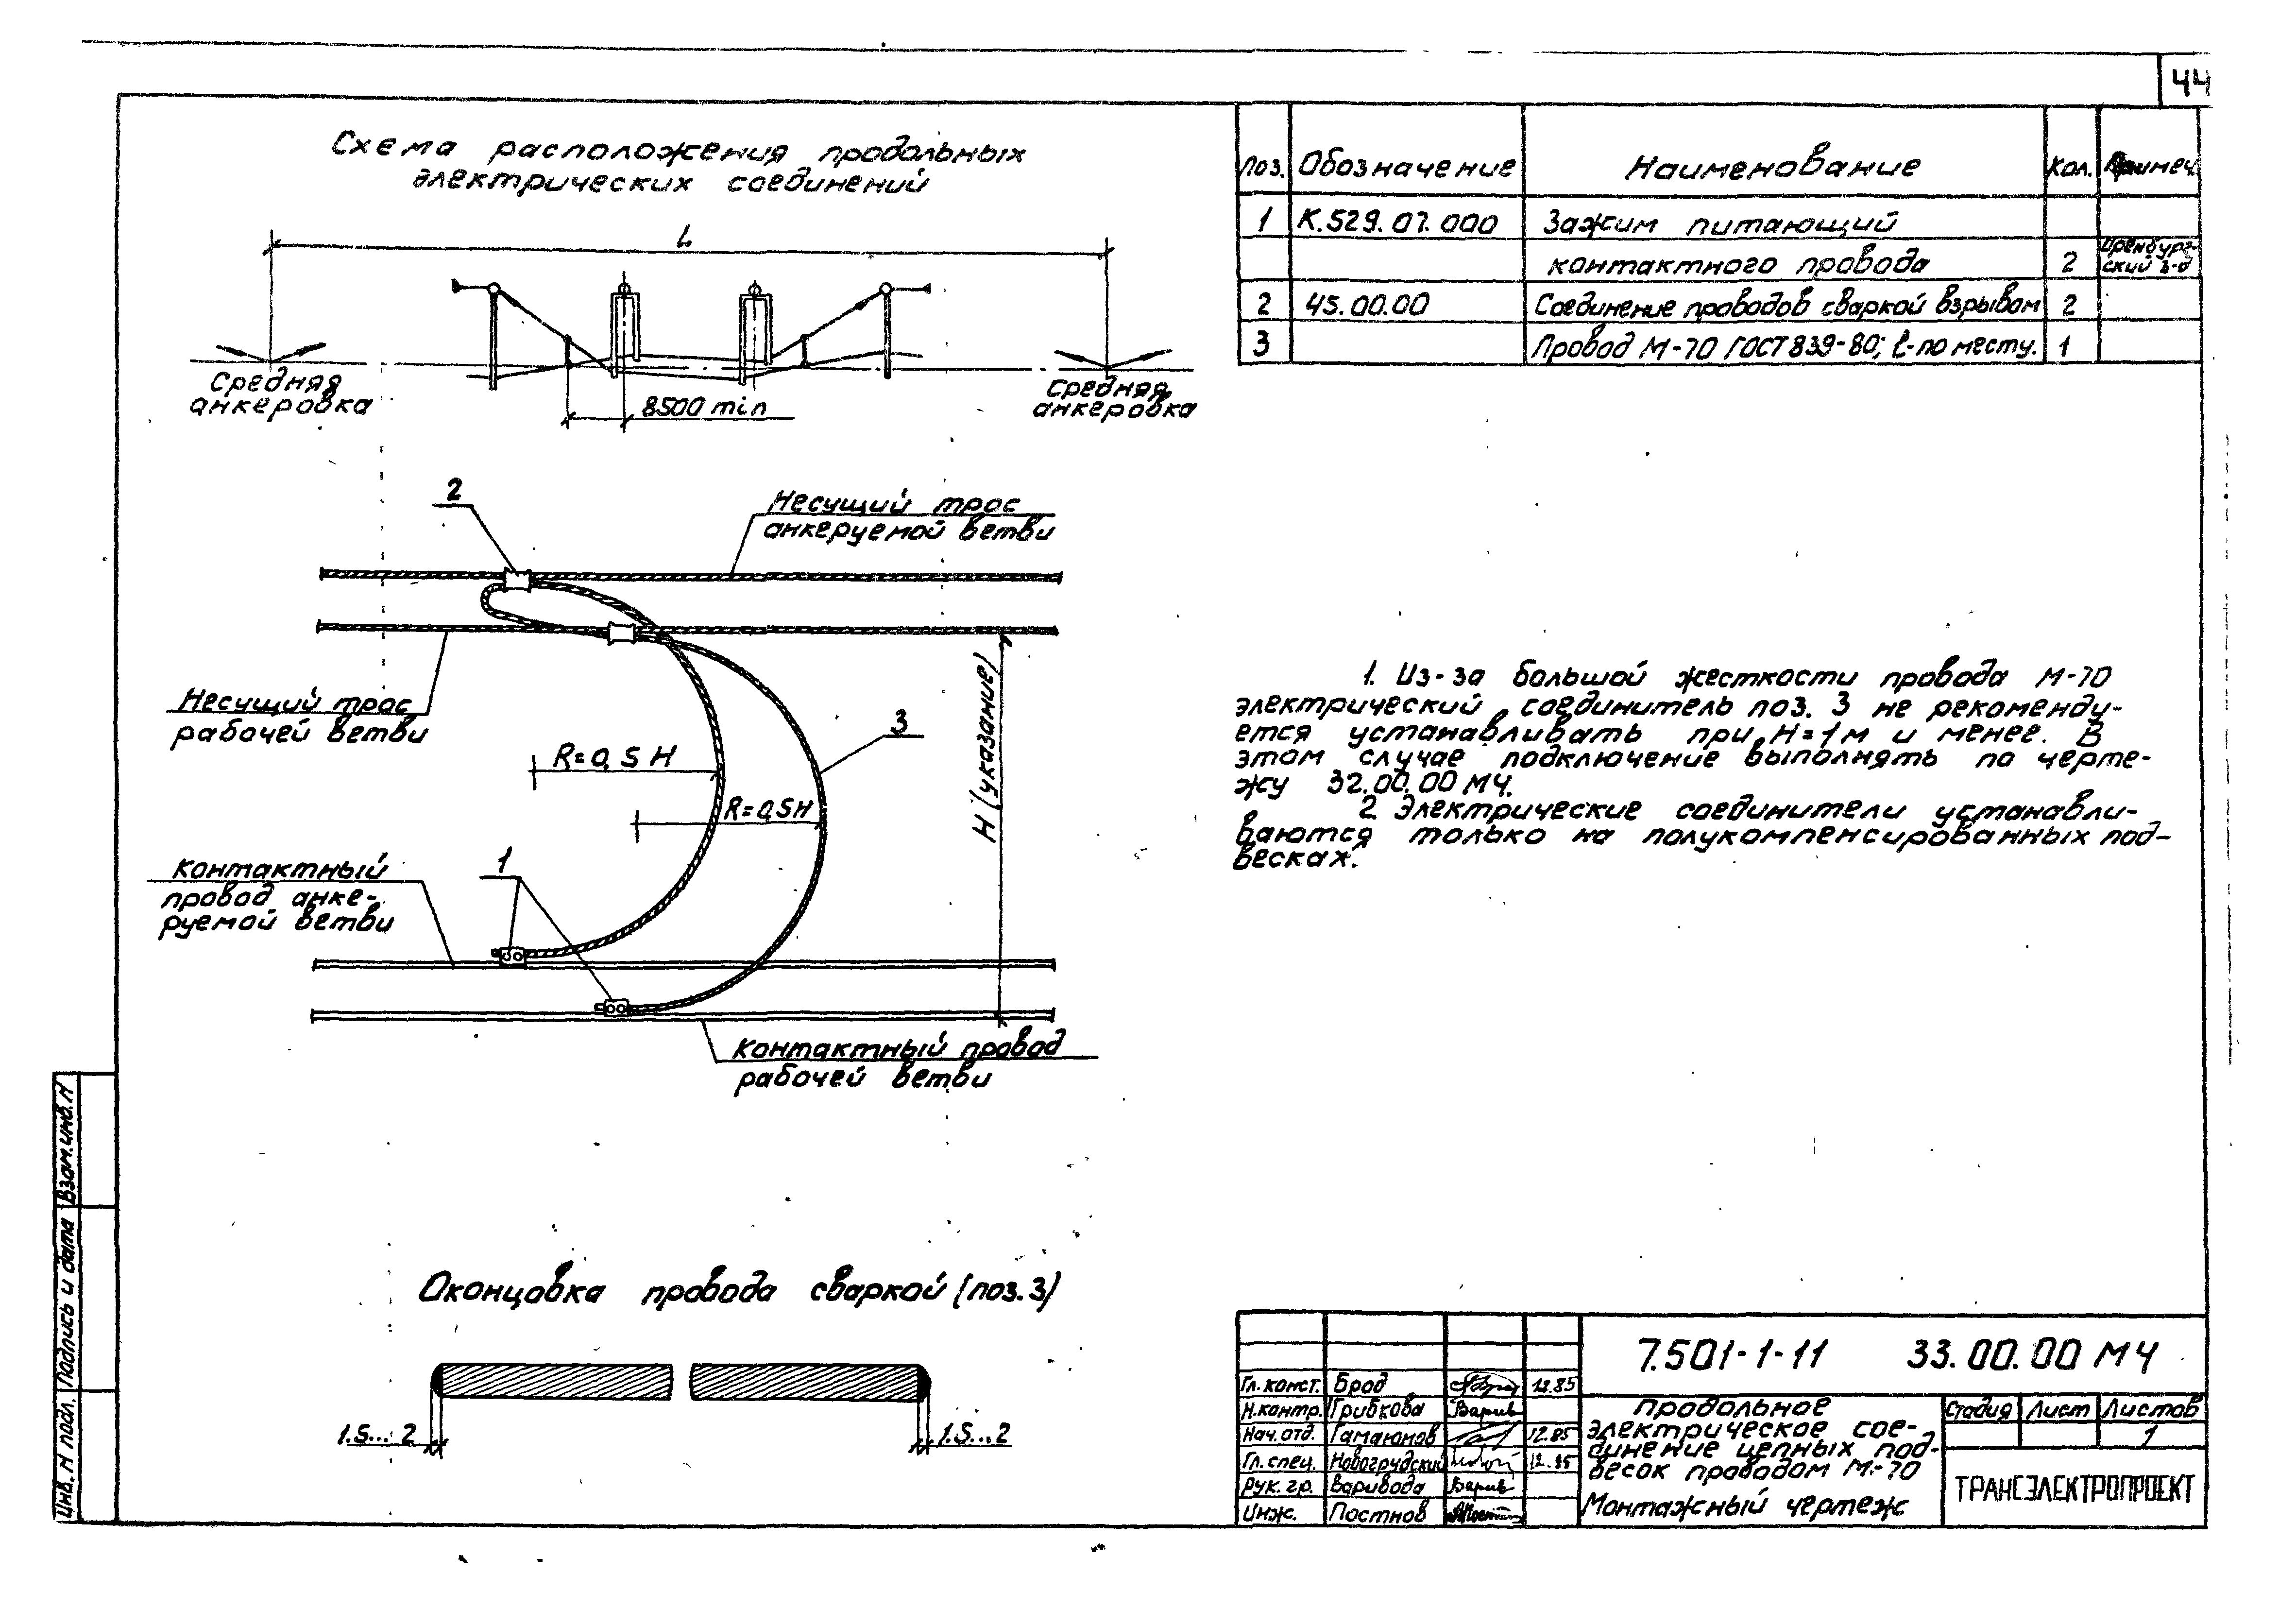 44
Схема расположения продольных
электрических соединений
L
Средняя
анкеровка
8500 min
Средняя
анкеровка
Поз. Обозначение Наименование Кол. Примеч.
1 К.529.07.000 Зажим питающий
контактного провода 2 Оренбург-
ский з-д
2 45.00.00 Соединение проводов сваркой взрывом 2
3 Провод М-70 ГОСТ 839-80; ℓ-по месту. 1
2
Несущий трос
анкеруемой ветви
Несущий трос
рабочей ветви
3
R=0,5 H
R=0,5H
H (указание)
Контактный
провод анке-
руемой ветви
1
Контактный провод
рабочей ветви
1. Из-за большой жесткости провода М-70
электрический соединитель поз. 3 не рекоменду-
ется устанавливать при H=1м и менее. В
этом случае подключение выполнять по черте-
жу 32.00.00 МЧ.
2. Электрические соединители устанавли-
ваются только на полукомпенсированных под-
весках.
Оконцовка провода сваркой (поз. 3)
1.5...2
1.5...2
Взам.инв.N
Подпись и дата
Инв. N подл.
7.501-1-11 33.00.00 МЧ
Гл. конст. Брод 12.85
Н.контр. Грибкова Варив
Нач. отд. Гамаюнов 12.85
Гл. спец. Новогрудский 12.85
Рук. гр. Варивода Варив
Инж. Постнов
Продольное
электрическое сое-
динение цепных под-
весок проводом М-70
Монтажный чертеж
Стадия Лист Листов
1
ТРАНСЭЛЕКТРОПРОЕКТ